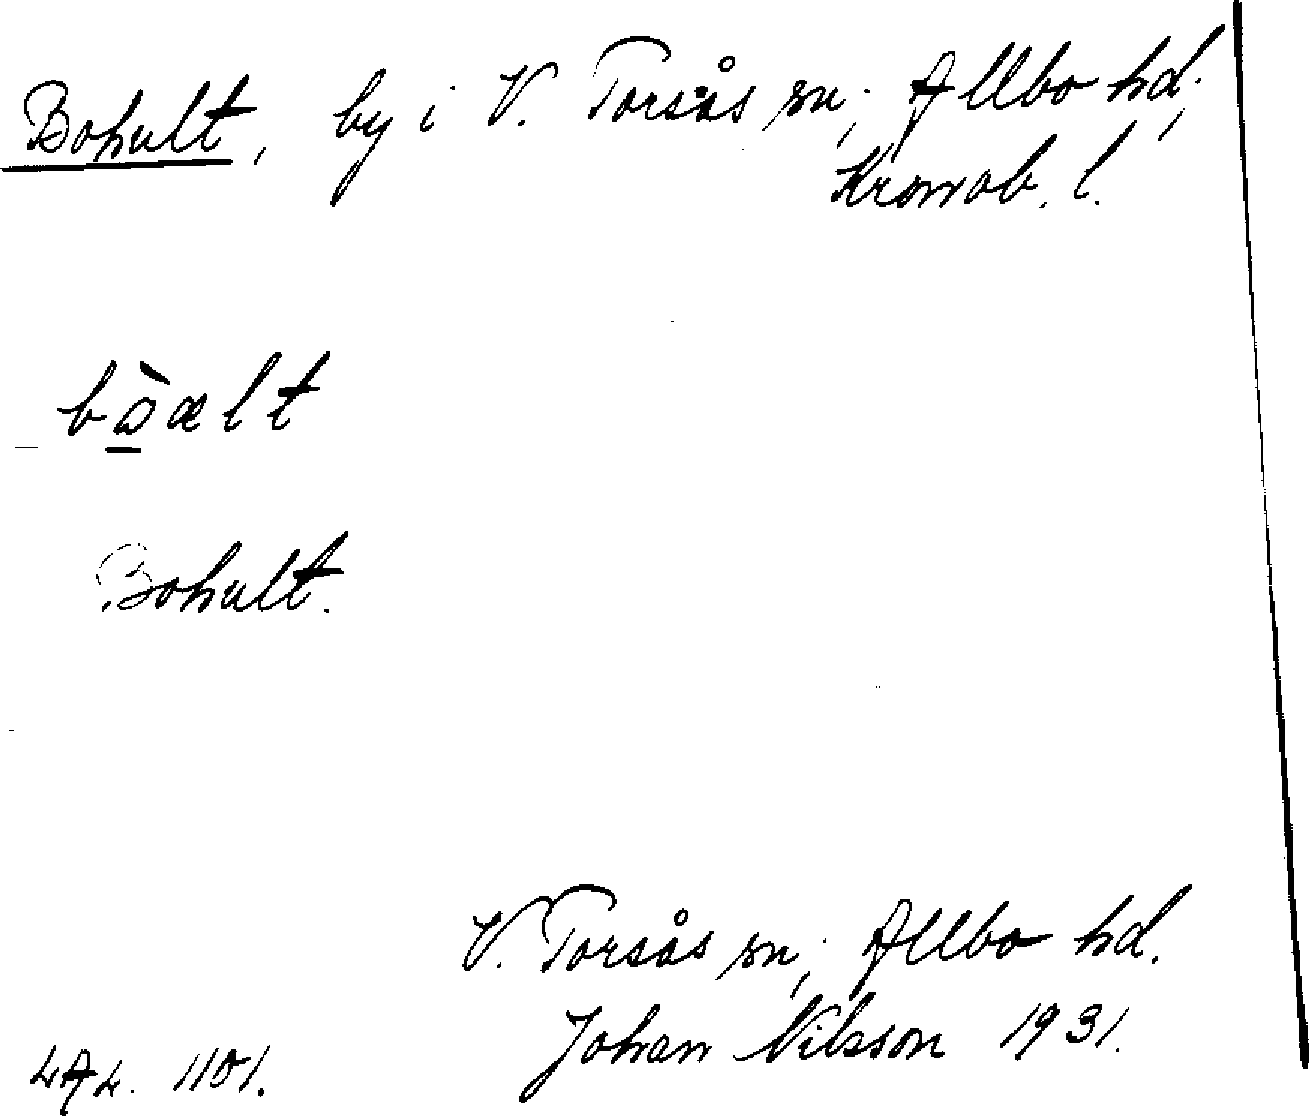 Bohult, by i V. Torsås sn; Allbo hd;
Kronob. l.
bòælt
Bohult.
V. Torsås sn; Allbo hd.
Johan Nilsson 1931.
LAL. 1101.